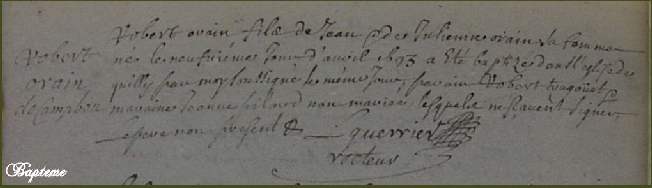 Robert orain
de Campbon
Robert orain fils de Jean et de Julienne orain sa femme
né le neufviémes jour d'avril 1693 a été baptizé dans l'eglise de
quilly par moy soussigné le méme jour, parain Robert
maraine Jeanne non mariée, lesquels ne sçavent signer
Le pere non present & Guerrier
recteur
Bapteme